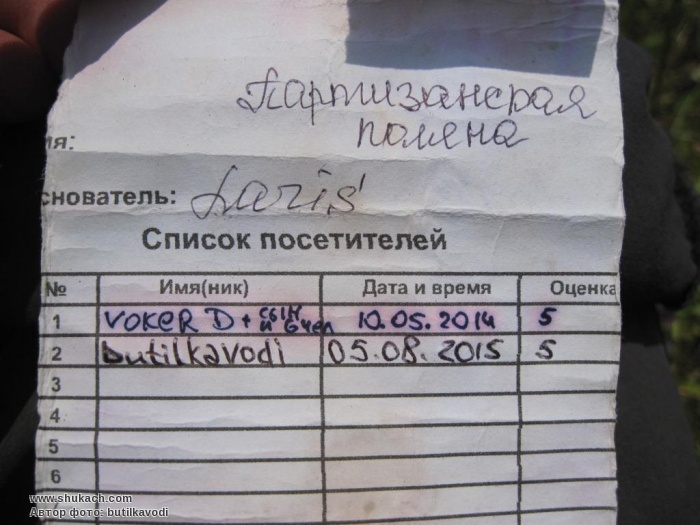 Партизанская
поляна
ия:
снователь: Laris
Список посетителей
№ Имя(ник) Дата и время Оценка
1 VOKER D + сын и 6 чел 10.05.2014 5
2 butilkavodi 05.08.2015 5
3
4
5
6
www.shukach.com
Автор фото: butilkavodi